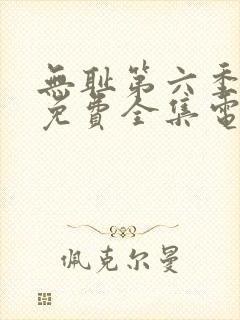 無恥第六季
免費全集電
佩克尔曼